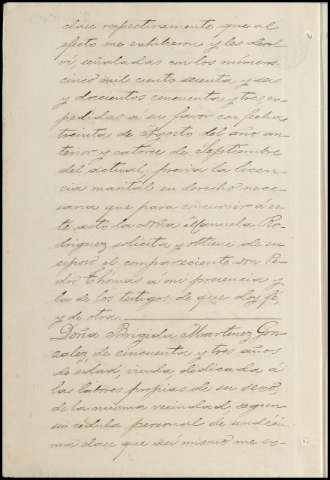 clase respectivamente que al
efecto me exhibieron y les devol-
ví, señaladas con los números
cinco mil ciento sesenta y seis
y doscientos cincuenta y tres ex-
pedidas a su favor con fechas
treinta de Agosto del año an-
terior y catorce de Septiembre
del actual, previa la licen-
cia marital en derecho nece-
saria que para concurrir á es-
te acto la Doña Manuela Ro-
driguez solicita y obtiene de su
esposo el compareciente Don Pe-
dro Thomas a mi presencia y
la de los testigos de que doy fé,
y de otra.
Doña Brigida Martinez Gon-
zalez, de cincuenta y tres años
de edad, viuda, dedicada á
las labores propias de su sexo,
de la misma vecindad, segun
su cédula personal de undéci-
ma clase que así mismo me ex-